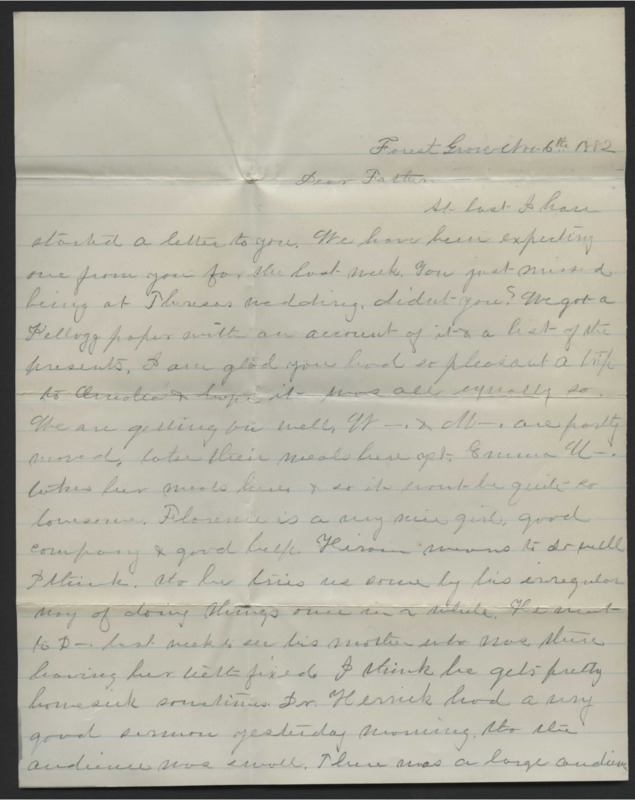 Forest Grove Nov. 6th 1882
Dear Father.
At last I have
started a letter to you. We have been expecting
one from you for the last week. You just missed
being at Theresas wedding, didn't you? We got a
Kellogg paper with an account of it & a list of the
presents. I am glad you had so pleasant a trip
to & hope it was all equally so.
We are getting on well, W—. & M—. are partly
moved, take their meals here yet. Emma U—.
takes her meals here & so it wont be quite so
lonesome. Florence is a very nice girl, good
company & good help. Hiram means to do well
I think, tho he tries us some by his irregular
way of doing things once in a while. He went
to P—. last week to see his mother who was there
having her teeth fixed. I think he gets pretty
homesick sometimes. Dr. Herrick had a very
good sermon yesterday morning, tho the
audience was small. There was a large audience